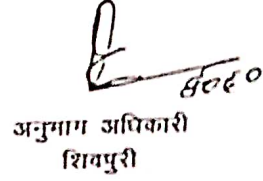 अनुभाग अधिकारी
शिवपुरी